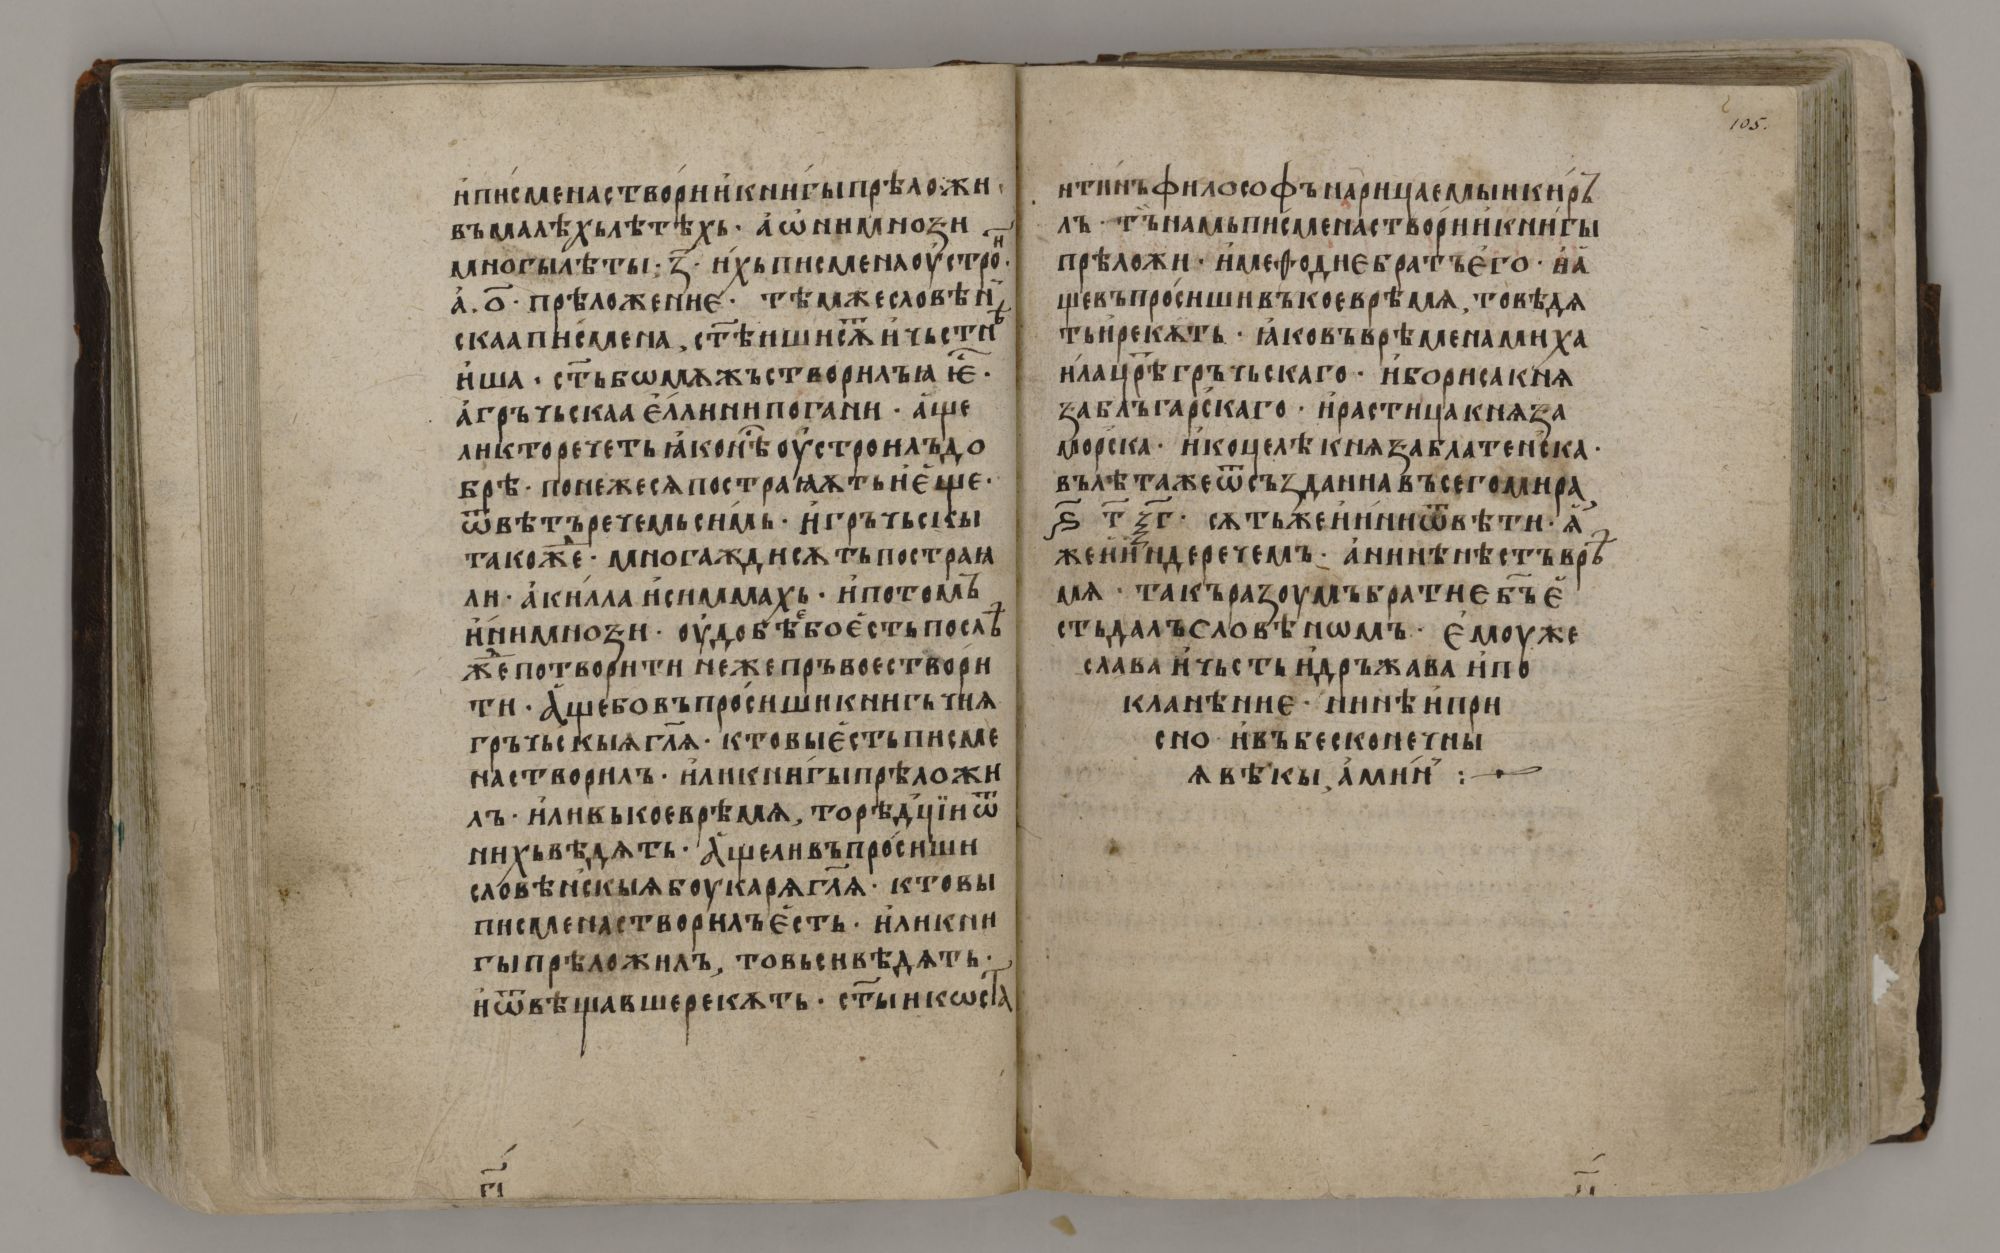 и҆писменаство́рии҆книгыпрѣложи ·
въмалѣхьлѣтѣхь · а҆ѡнимноѕи
многылѣты · з҃ · и҆́хьписменаоу҆строи ·
а҆ . о҃ · прѣложение · тѣмжесловѣн
скааписмена , ст҃ѣишисѫт҃ и҆чьстнѣ
и҆ша · ст҃ьбѡмѫжьстворилъꙗ ѥ҆с҃ ·
а҆грьчьскаа є҆ллинипогани · а҆́ще
ликторечетьꙗ҆конѣс҃оу҆строилъдо
брѣ · понежесѧпостраꙗѫтьиє҆ще ·
ѿвѣтьречемьсимь · и҆грьчьскы
такоже · многаждисѫтьпострaꙗ
ли · а҆килла и҆симмахь · и҆потомъ
и҆нимноѕи · оу҆добѣебоє҆стьпослѣ
жепотворити нежепръвоествори
ти · А҆щебовъпросишикнигьчиѧ
грьчьскыѧгл҃ѧ · ктовыє҆стьписме
настворилъ · и҆ликнигыпрѣложи
лъ · и҆ливькоеврѣмѧ , торѣдции ѿ
нихьвѣдѧть · А҆щеливъпросиши
словѣнскыѧбоукарѧгл҃ѧ · ктовы
писменастворилъє҆сть · и҆ликни
гыпрѣложилъ , товьсивѣдѧть ·
и҆ѿвѣщавшерекѫть · ст҃ыикѡста
г҃і
105.
нтинъфилософънарицаемыикирѵ
лъ · тъ намьписменаствории҆книгы
прѣложи · и҆меѳодиебратъє҆го · и҆а҆
щевъпросишивъкоеврѣмѧ , товѣдѧ
тьи҆рекѫть · ꙗ҆ковъврѣменамиха
и҆лацр҃ѣгрьчьскаго · и҆борисакнѧ
ꙁаблъгарскаго · и҆растицакнѧꙁа
морска · и҆коцелѣкнѧꙁаблатенска ·
вълѣтажеѿсъꙁданиавъсегомира ,
ѕ҃ т҃ ѯ҃г · сѫтьжеи҆и҆ниѿвѣти · ꙗ҆
жеи҆ндеречемъ · а҆нинѣнѣстьврѣ
мѧ · такъраꙁоумъбратие б҃ъ є҆
стьдалъсловѣнѡмъ · є҆моуже
слава и҆чьсть и҆дръжава и҆по
кланѣние · нинѣи҆при
сно и҆въбесконечны
ѧвѣкы , а҆мин :